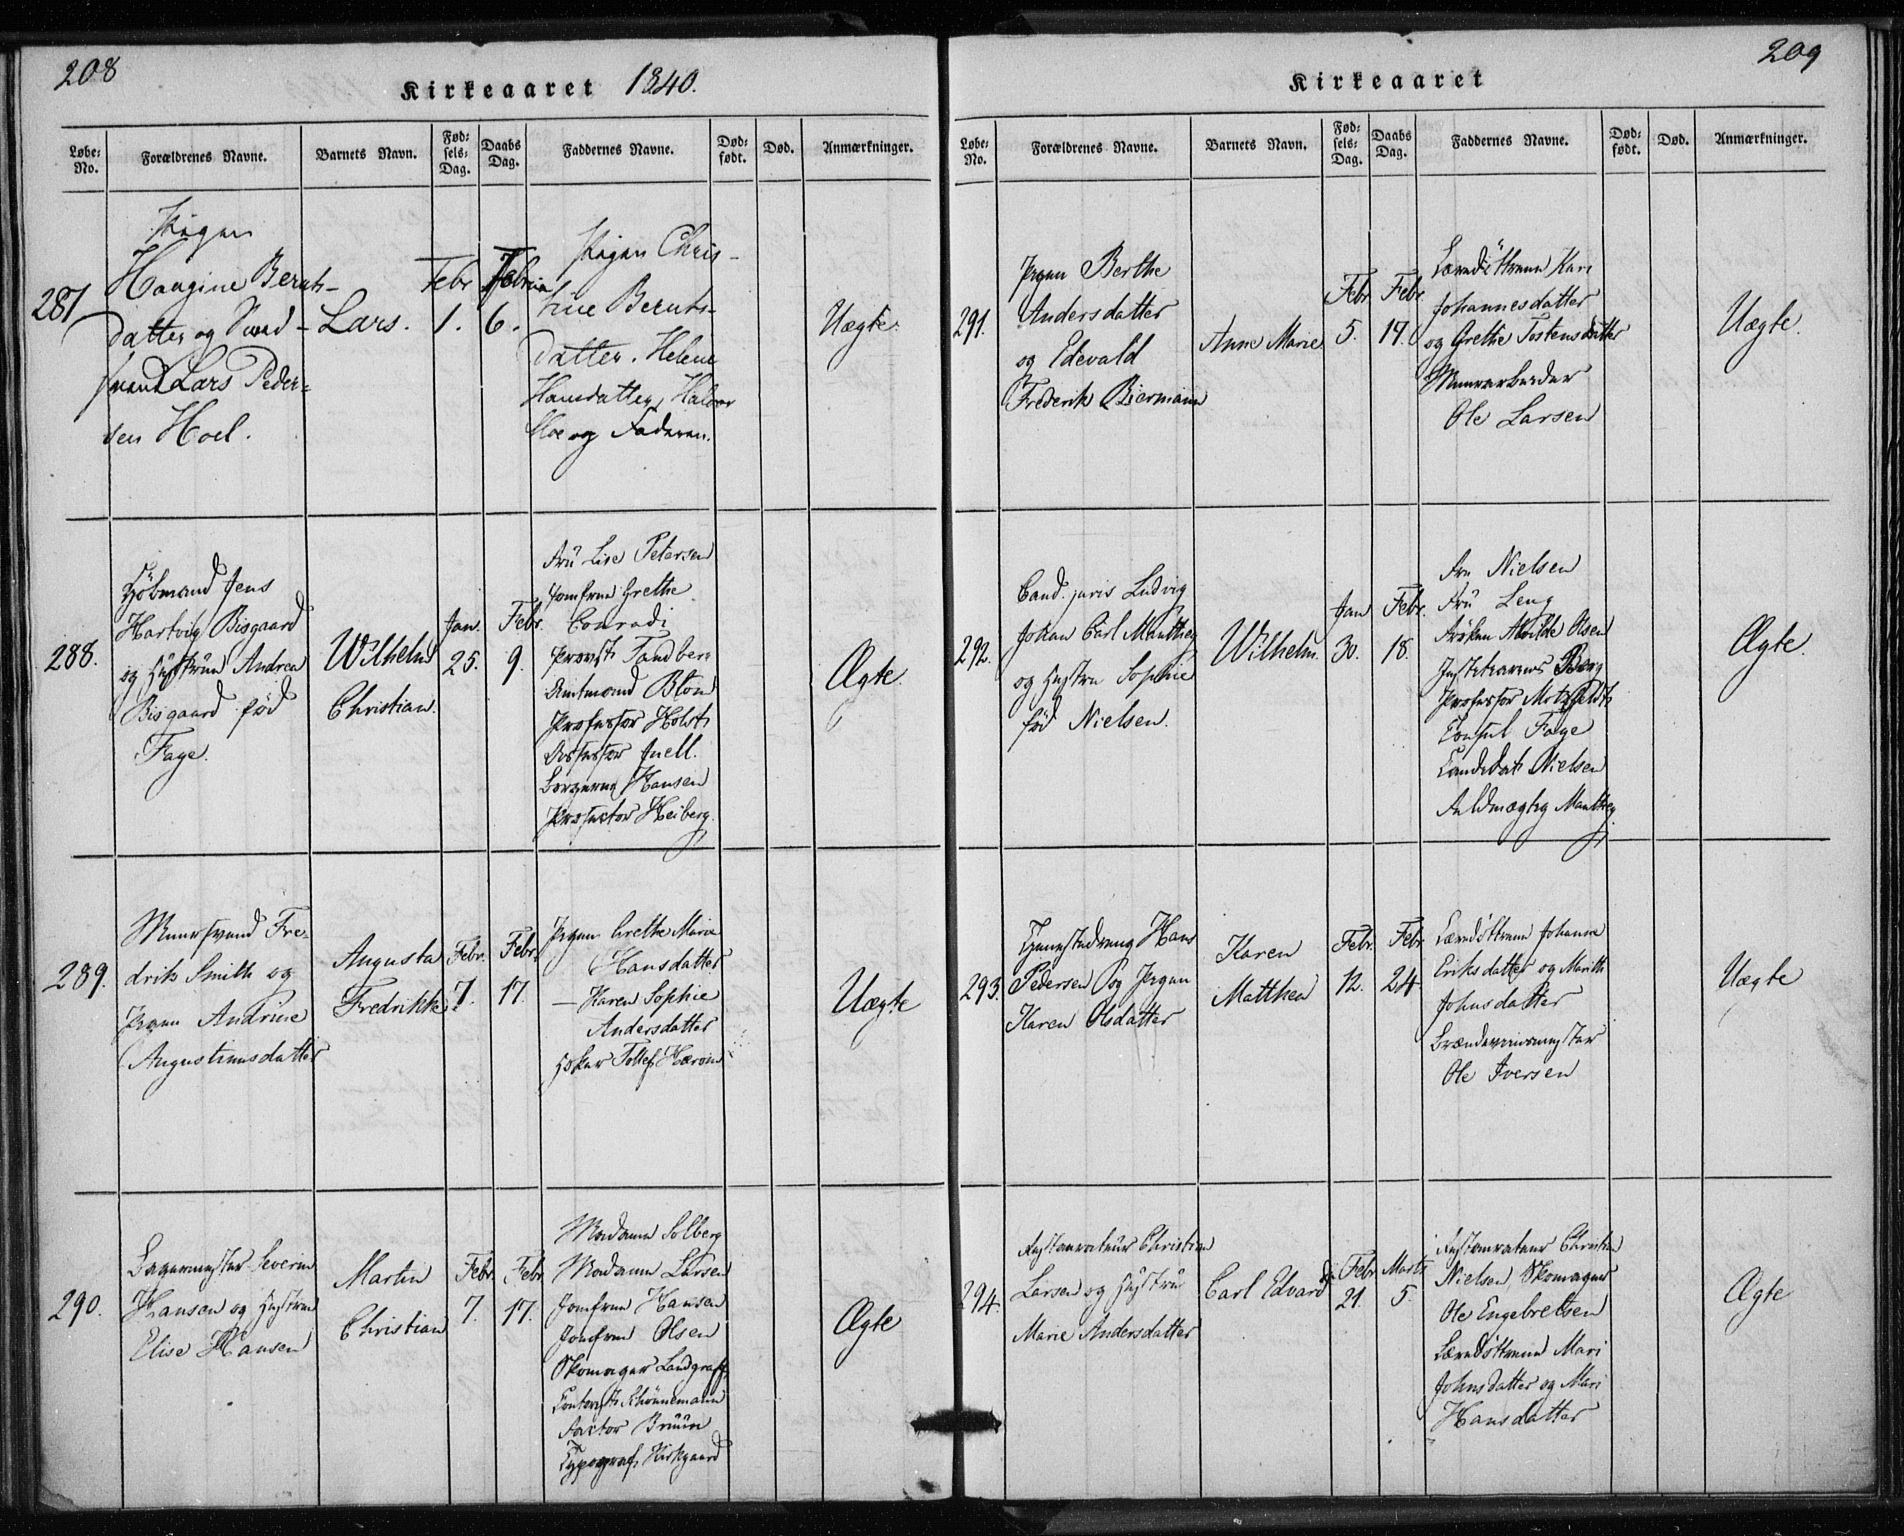 208
Kirkeaaret 1840.
Løbe-No. Forældrenes Navne. Barnets Navn. Fød-sels-Dag. Daabs Dag. Faddernes Navne. Død-født. Død. Anmærkninger.
287
Pigen
Haagine Bernts-
datter og Sned-
svend Lars Peder-
sen Hoel.
Lars.
Febr
1.
Februar
6.
Pigen Chris-
tine Bernts-
datter. Helene
Hansdatter, Halvor
Moe og Faderen.
Uægte.
288.
Jens
Hartvig Bisgaard
og Hustrue Andrea
Bisgaard fød
Faye.
Wilhelm
Christian.
Jan.
25.
Febr.
9.
Fru Lise Petersen
Jomfrue Grethe
Conradi
Provst Tandberg
Amtmand Blom
Professor Holst
Assessor Juell.
Hansen
Prosector Heiberg.
Ægte.
289.
Muursvend Fre-
drik Smith og
Pigen Andrine
Augustinusdatter
Augusta
Fredrikke
Febr.
7.
Febr.
17.
Pigen Grethe Marie
Hansdatter
— Karen Sophie
Andersdatter
Tollef
Uægte
290.
Severin
Hansen og Hustrue
Elise Hansen
Martin
Christian
Febr.
7.
Febr.
17.
Madame Solberg
Madame Larsen
Jomfrue Hansen
Jomfrue Olsen
Skomager Landgraff
Schønnemann
Factor Bruun
Typograf Kirkgaard
Ægte
209
Kirkeaaret
Løbe-No. Forældrenes Navne. Barnets Navn. Fød-sels-Dag. Daabs Dag. Faddernes Navne. Død-født. Død. Anmærkninger.
291.
Pigen Berthe
Andersdatter
og Edevald
Frederik Biermann
Anne Marie
Febr.
5.
Febr.
19.
Kari
Johannesdatter
og Grethe Tostensdatter
Muurarbeider
Ole Larsen
Uægte.
292.
Cand. juris Ludvig
Johan Carl Manthey
og Hustru Sophie
fød Nielsen.
Wilhelm.
Jan
30.
Febr.
18.
Fru Nielsen
Fru Leng
Frøken Alvilde Olsen
Berg
Professor Motzfeldt
Consul Faye
Candidat Nielsen
Fuldmægtig Manthey
Ægte.
293.
Tjenestedreng Hans
Pedersen og Pigen
Karen Olsdatter
Karen
Matthea
Febr.
12.
Febr
24
Johanne
Eriksdatter og Marith
Johnsdatter
Brændeviinsmester
Ole Iversen
Uægte
294.
Restaurateur Christian
Larsen og Hustru
Marie Andersdatter
Carl Edvard
Febr.
21.
Marts
5.
Restaurateur Christian
Nielsen, Skomager
Ole Engebretsen
Mari
Johnsdatter og Mari
Hansdatter
Ægte